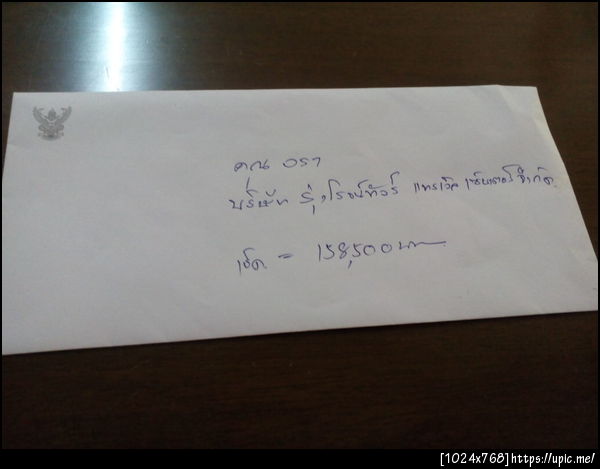 คุณ อรา
บริษัท รุ่งโรจน์ทัวร์ แทรเวิล เซ็นเตอร์ จำกัด
เช็ค = 158,500 บาท
[1024x768]https://upic.me/